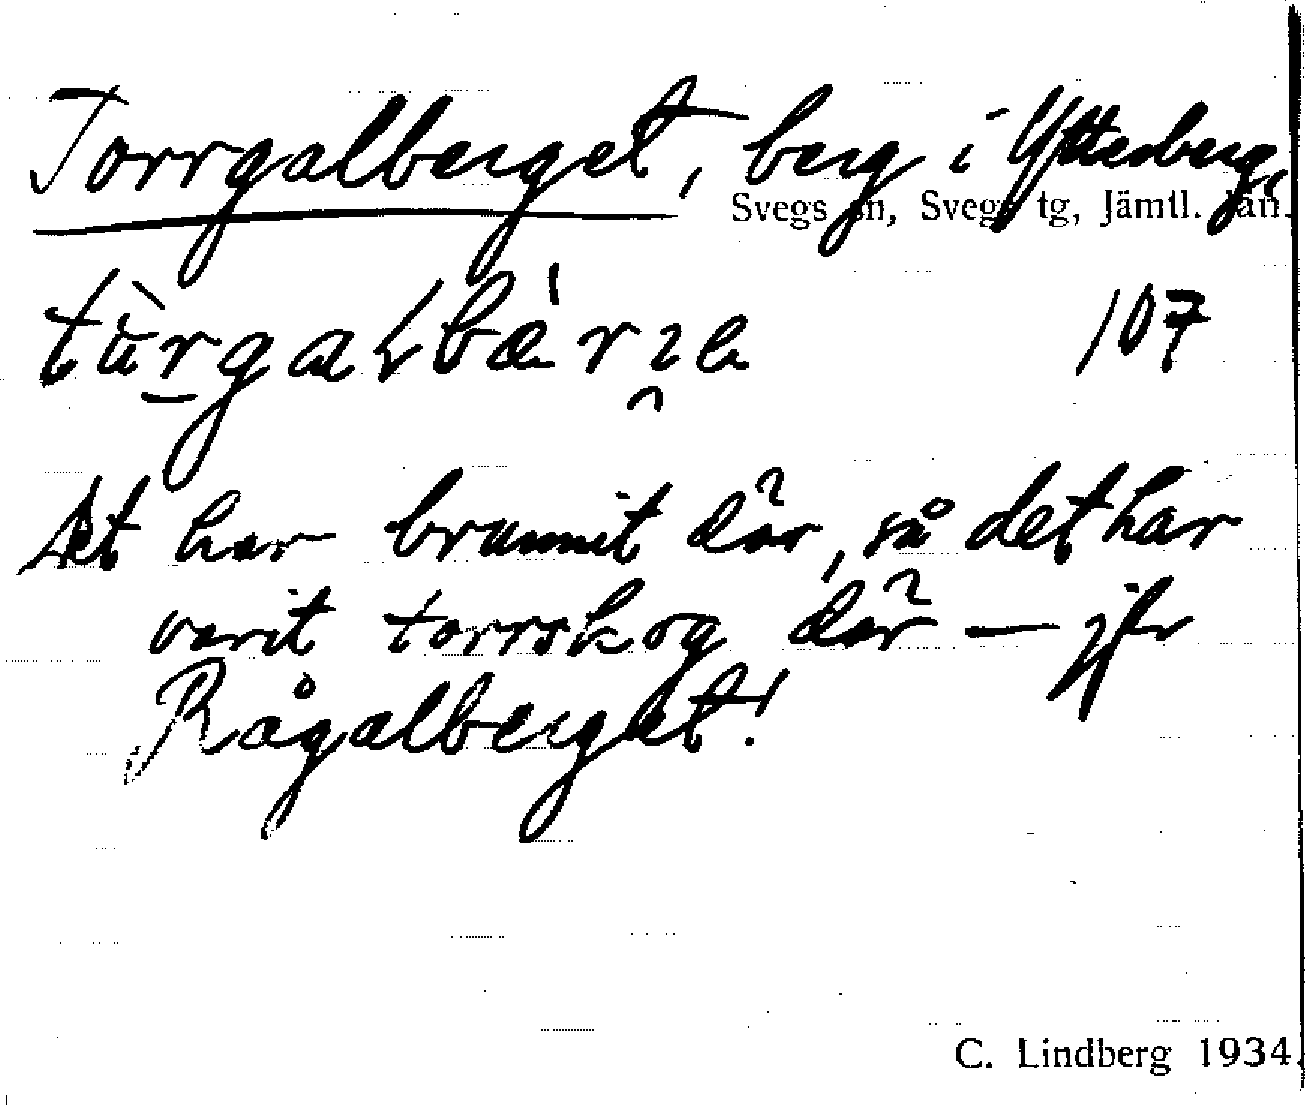 Torrgalberget, berg i Ytterberg,
Svegs sn, Svegs tg, Jämtl. län.
107
Det har brunnit där, så det har
varit torrskog där — jfr
Rågalberget!
C. Lindberg 1934.